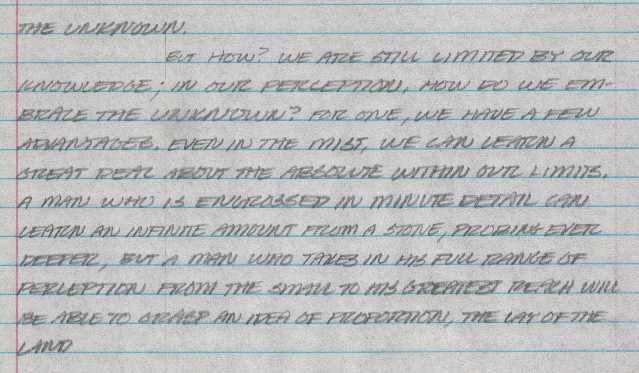 THE UNKNOWN.
BUT HOW? WE ARE STILL LIMITED BY OUR
KNOWLEDGE; IN OUR PERCEPTION, HOW DO WE EM-
BRACE THE UNKNOWN? FOR ONE, WE HAVE A FEW
ADVANTAGES. EVEN IN THE MIST, WE CAN LEARN A
GREAT DEAL ABOUT THE ABSOLUTE WITHIN OUR LIMITS.
A MAN WHO IS ENGROSSED IN MINUTE DETAIL CAN
LEARN AN INFINITE AMOUNT FROM A STONE, PROBING EVER
DEEPER, BUT A MAN WHO TAKES IN HIS FULL RANGE OF
PERCEPTION FROM THE SMALL TO HIS GREATEST REACH WILL
BE ABLE TO GRASP AN IDEA OF PROPORTION, THE LAY OF THE
LAND